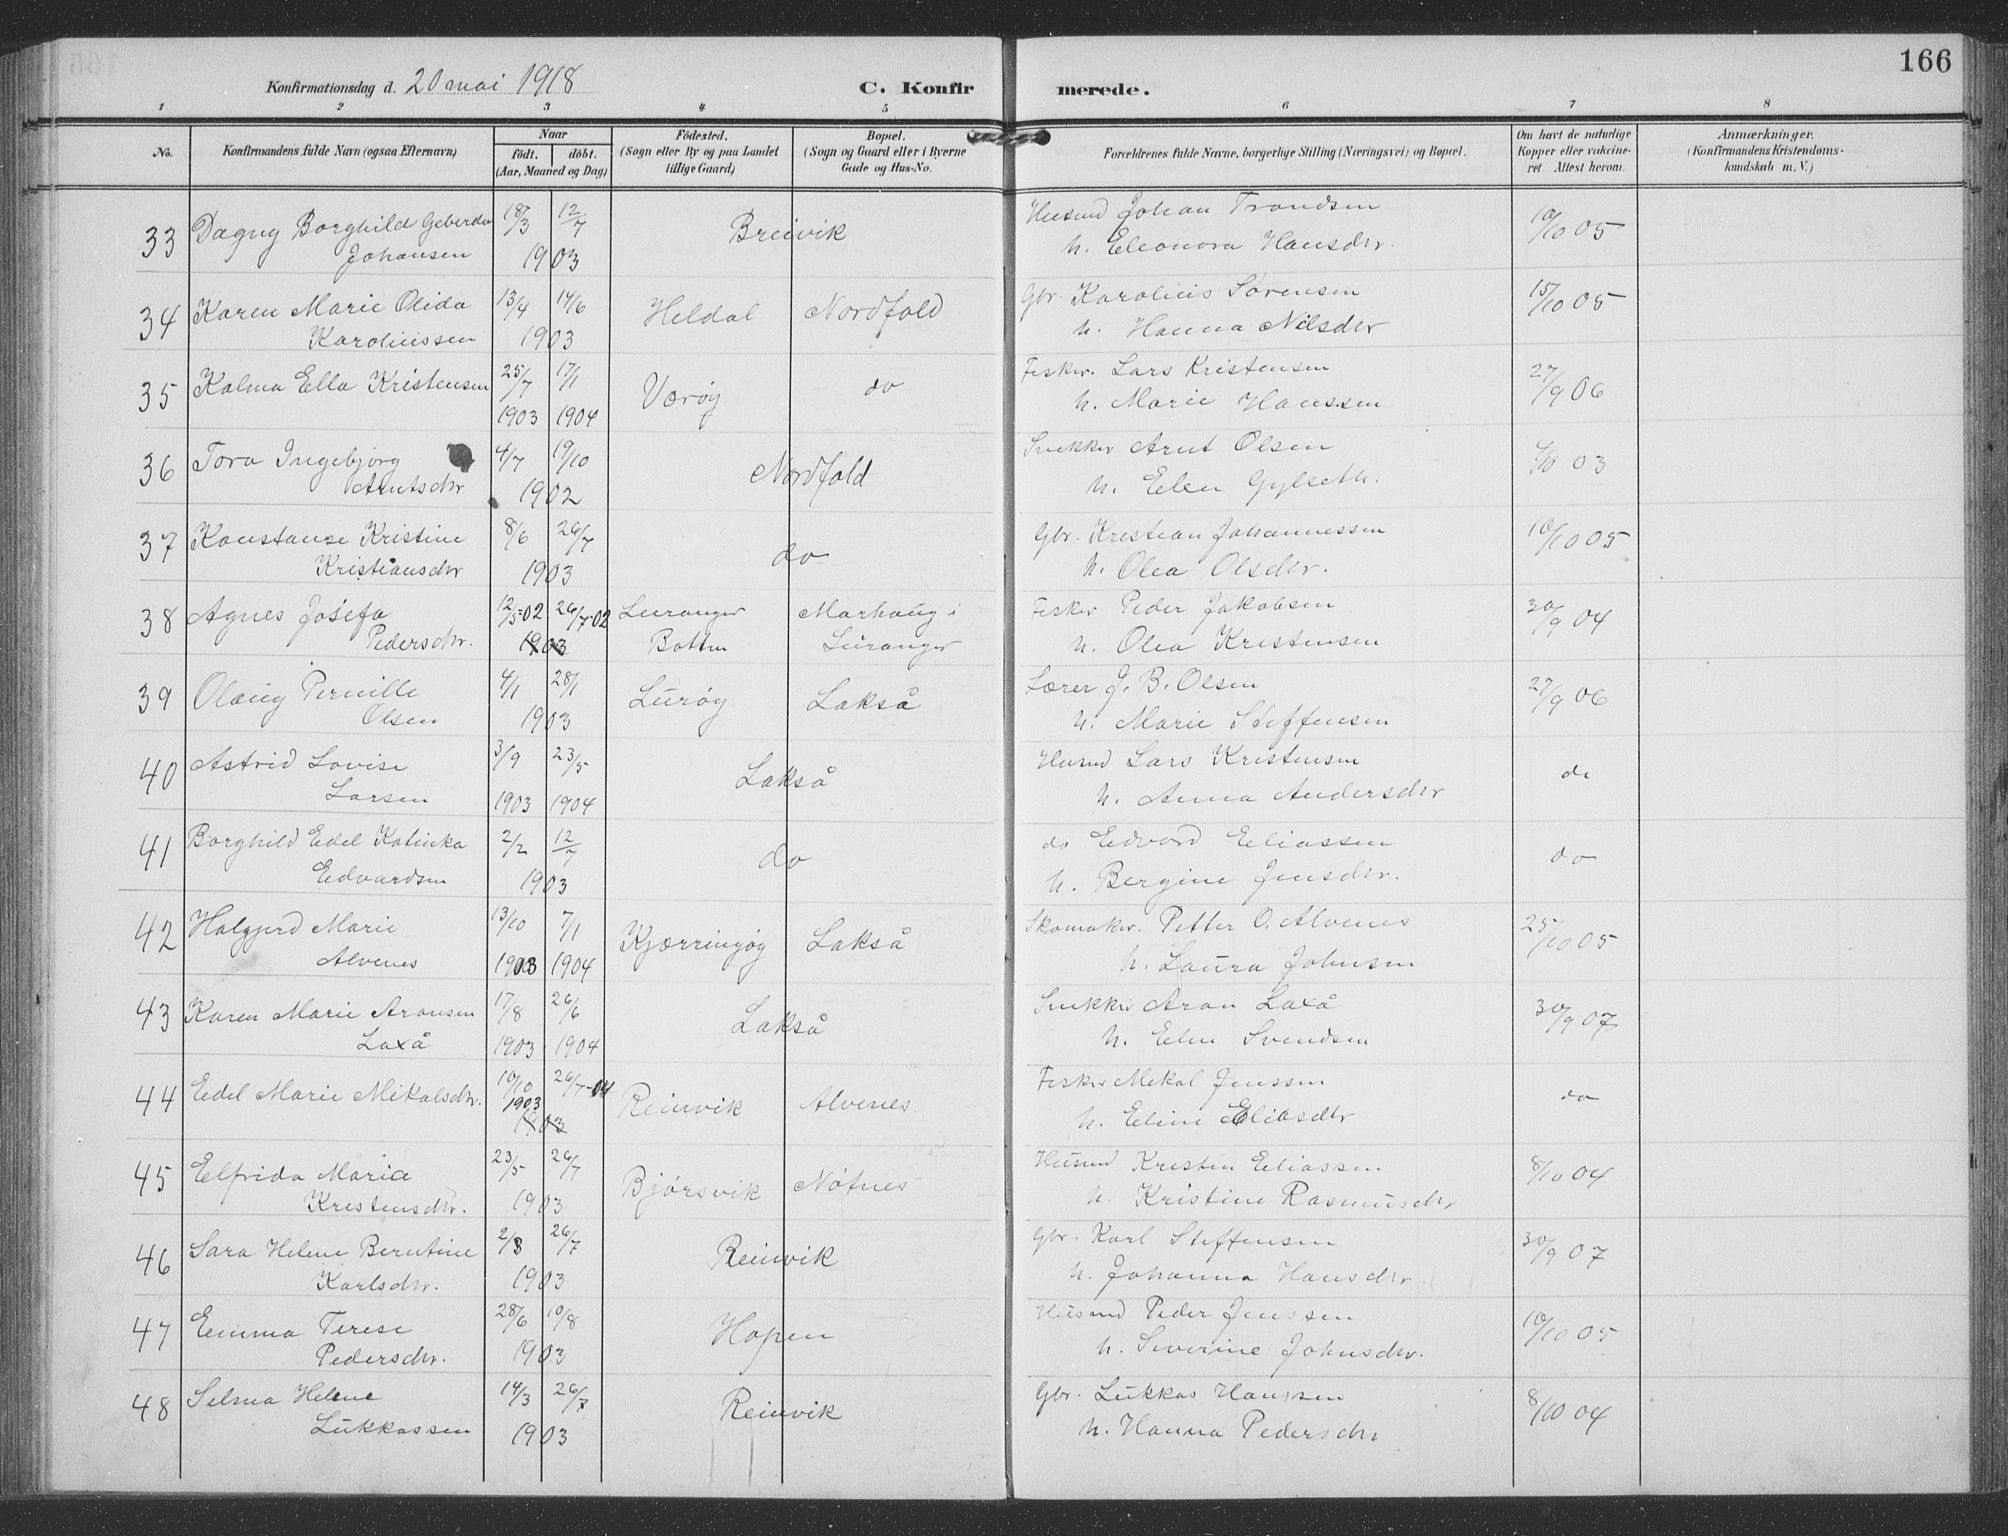 166
Konfirmationsdag d. 20 mai 1918 C. Konfirmerede.
1 2 3 4 5 6 7 8
No. Konfirmandens fulde Navn (ogsaa Efternavn) Naar födt. döbt. (Aar, Maaned og Dag) Födested. (Sogn eller By og paa Landet tillige Gaard) Bopæl. (Sogn og Gaard eller i Byerne Gade og Hus-No. Forældrenes fulde Navne, borgerlige Stilling (Næringsvei) og Bopæl. Om havt de naturlige Kopper eller vakcineret. Attest herom. Anmærkninger. (Konfirmandens Kristendomskundskab m. V.)
33 Dagny Borghild Geberda 18/3 12/7 Breivik Husmd Johan Trondsen 10/10 05
Johansen 1903 h. Eleonora Hansdtr.
34 Karen Marie Olida 13/4 14/6 Heldal Nordfold Gbr. Karolius Sörensen 15/10 05
Karoliussen 1903 h. Hanna Nilsdtr
35 Kalma Ella Kristensen 25/7 17/1 Værøy do Fisker. Lars Kristensen 27/9 06
1903 1904 h. Marie Hanssen
36 Tora Ingebjörg 4/7 19/10 Nordfold Snekker Arnt Olsen 03
Arntsdtr 1902 h. Elen Gylseth.
37 Konstanse Kristine 8/6 26/7 do Gbr. Kristian Johannessen 10/10 05
Kristiansdtr 1903 h. Olea Olsdtr.
38 Agnes Josefa 12/5-02 26/7-02 Leiranger Marhaug i Fisker Peder Jakobsen 30/9 04
Pedersdtr. 1903 Botten Leiranger h. Olea Kristensen
39 Olaug Pernille 4/1 28/1 Lurøy Lakså Lærer J. B. Olsen 27/9 06
Olsen 1903 h. Marie Steffensen
40 Astrid Lovise 3/9 23/5 Lakså Husmd Lars Kristensen do
Larsen 1903 1904 h. Anna Andersdtr
41 Borghild Edel Katinka 2/2 12/7 do do Edvard Eliassen do
Edvardsen 1903 h. Bergine Jensdtr.
42 Halgjerd Marie 13/10 7/1 Kjærringøy Lakså Skomaker. Petter O. Alvenes 25/10 05
Alvenes 1903 1904 h. Laura Johnsen
43 Karen Marie Aronsen 17/8 26/6 Lakså Snekker Aron Laxå 30/9 07
Laxå 1903 1904 h. Elen Svendsen
44 Edel Marie Mikalsdtr. 10/10 1903 26/7-04 Reinvik Alvenes Fisker Mikal Jenssen do
1903 h. Eline Eliasdtr
45 Elfrida Maria 23/5 26/7 Bjørsvik Nøtnes Husmd Kristen Eliassen 8/10 04
Kristensdtr. 1903 h. Kristine Rasmusdtr
46 Sara Helene Berntine 2/3 26/7 Reinvik Gbr. Karl Steffensen 30/9 07
Karlsdtr. 1903 h. Johanna Hansdtr.
47 Emma Terese 28/6 10/8 Hopen Husmd Peder Jenssen 10/10 05
Pedersdtr. 1903 h. Severine Johnsdtr.
48 Selma Helene 14/3 26/7 Reinvik Gbr. Lukkas Hanssen 8/10 04
Lukkassen 1903 h. Hanna Pedersdtr